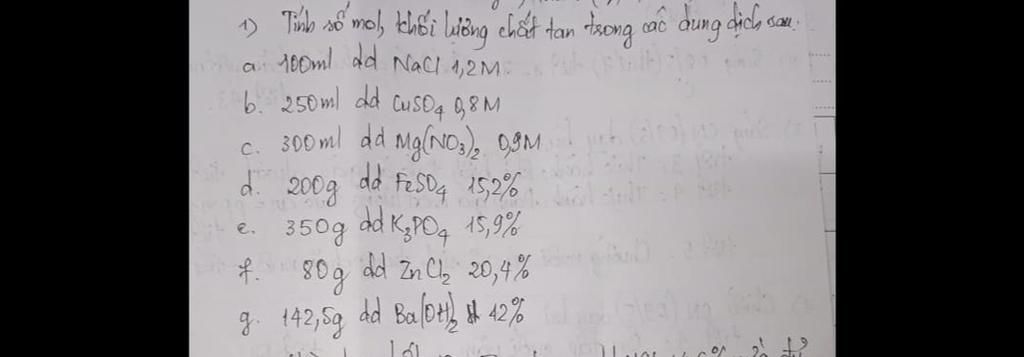 1) Tính số mol, khối lượng chất tan trong các dung dịch sau.
a. 100ml dd NaCl 1,2M
b. 250ml dd CuSO4 0,8M
c. 300ml dd Mg(NO3)2 0,9M
d. 200g dd FeSO4 15,2%
e. 350g dd K3PO4 15,9%
f. 80g dd ZnCl2 20,4%
g. 142,5g dd Ba(OH)2 12%